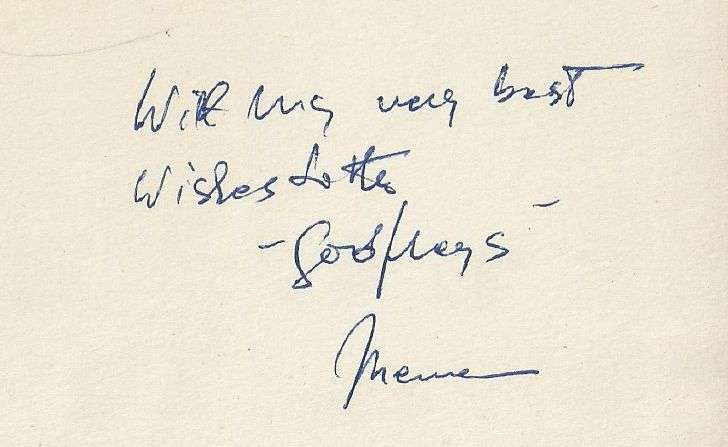 With my very best
Wishes to the
- Godfreys -